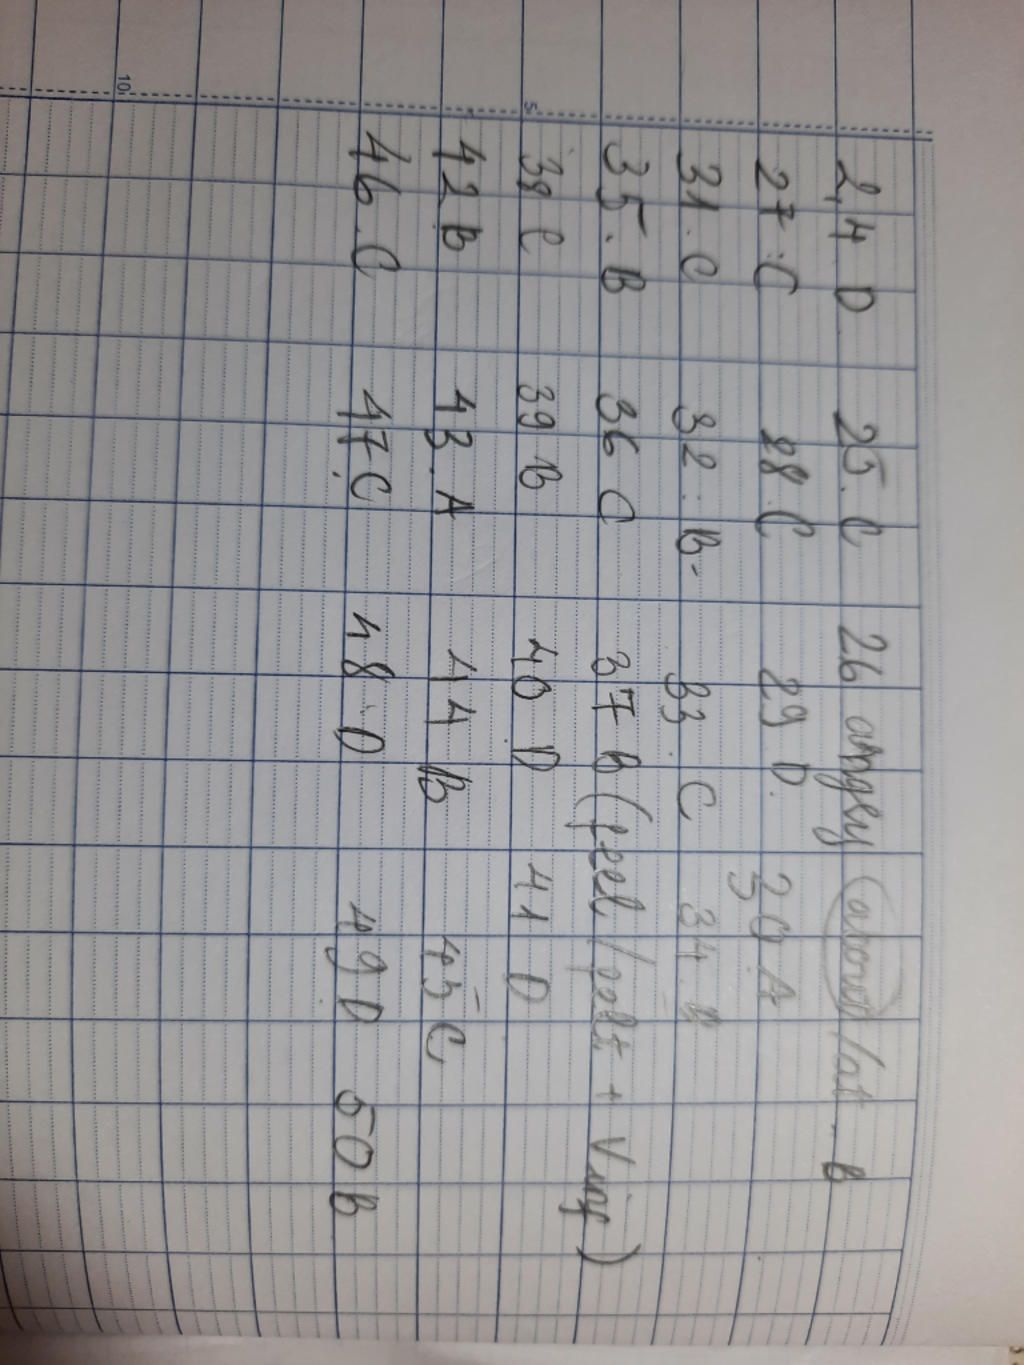 24 D. 25. C 26 angry (about) /at .. B
27 : C 28. C 29 D. 30 A
31. C 32 : B- 33. C 34. B
35. B 36 C 37 B (feel / felt + Ving)
38 C 39 B 40 D 41 D
42 B 43. A 44 B 45 C
46. C 47. C 48. D 49 D 50 B
5
10